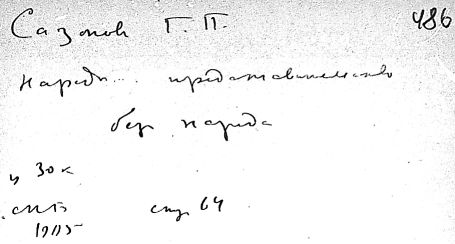 Сазонов Г. П. 486
Народн... представительство
без народа
ц 30 к
СПБ стр 64
1905